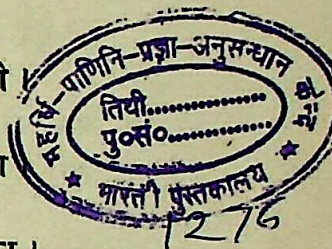 महर्षि-पाणिनि-प्रज्ञा-अनुसन्धान केन्द्र
तिथी..................
पु०सं०..................
भारती पुस्तकालय
1276